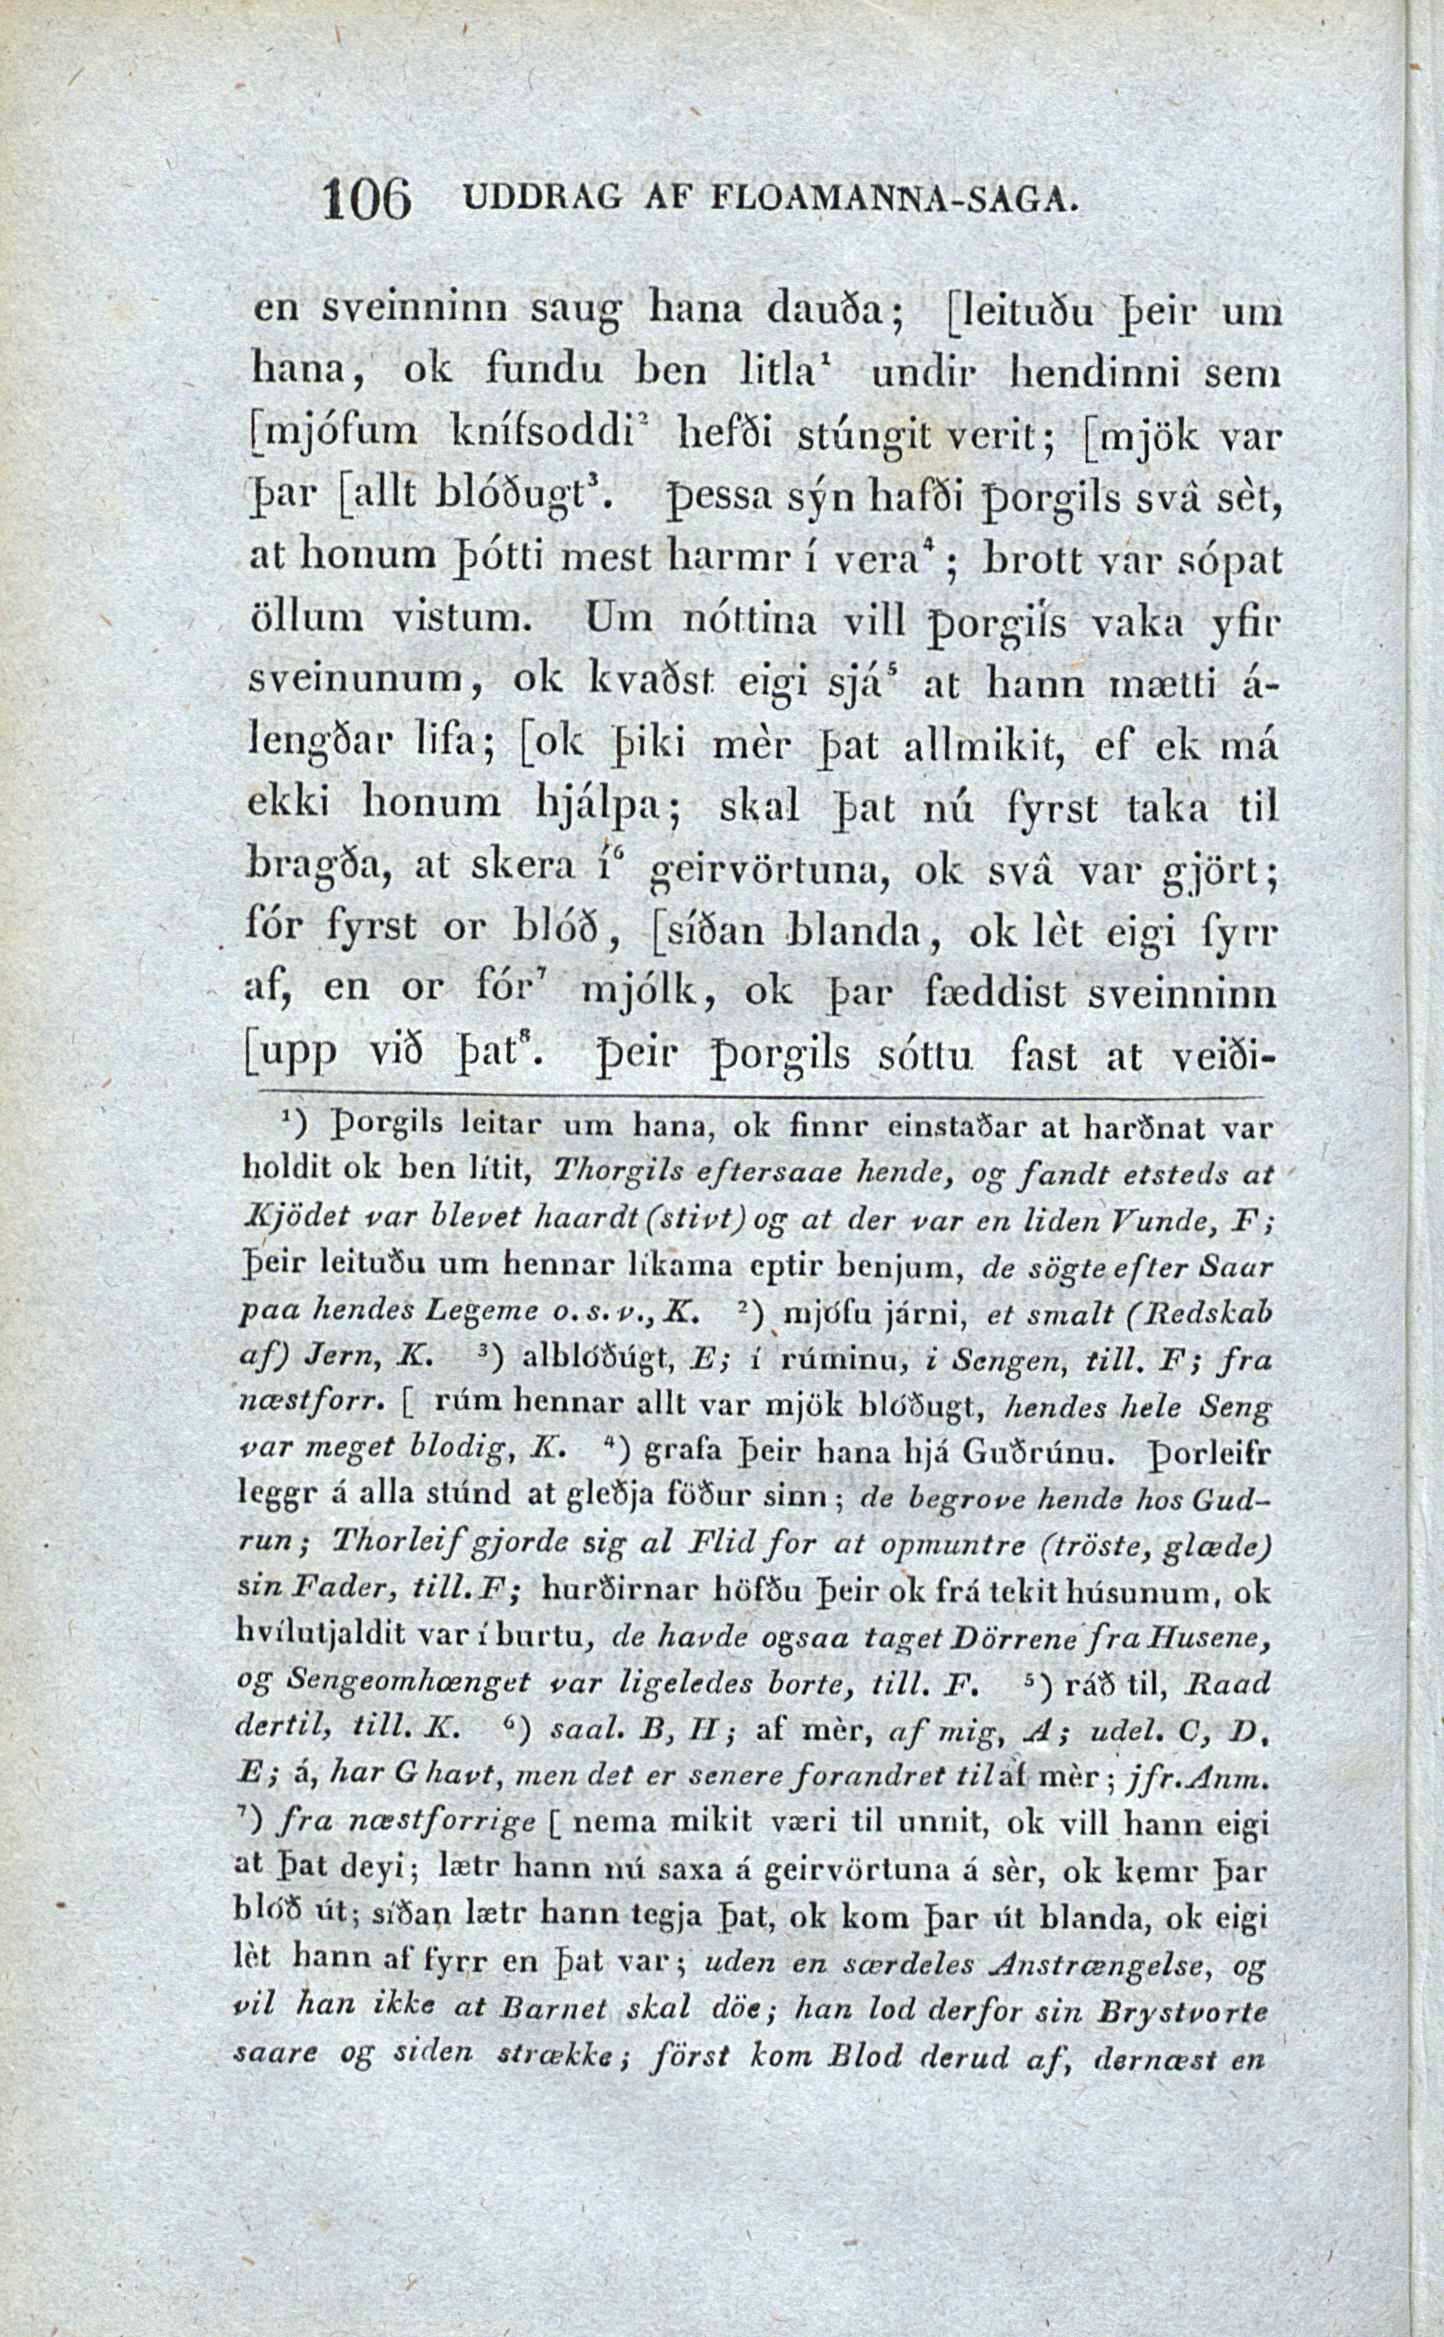 106 UDDRAG AF FLOAMANNA-SAGA.
en sveinninn saug hana dauða; [leituðu þeir um
hana, ok fundu ben litla¹ undir hendinni sem
[mjófum knífsoddi² hefði stúngit verit; [mjök var
þar [allt blóðugt³. Þessa sýn hafði Þorgils svâ sèt,
at honum þótti mest harmr í vera⁴; brott var sópat
öllum vistum. Um nóttina vill Þorgils vaka yfir
sveinunum, ok kvaðst eigi sjá⁵ at hann mætti á-
lengðar lifa; [ok þiki mèr þat allmikit, ef ek má
ekki honum hjálpa; skal þat nú fyrst taka til
bragða, at skera í⁶ geirvörtuna, ok svâ var gjört;
fór fyrst or blóð, [síðan blanda, ok lèt eigi fyrr
af, en or fór⁷ mjólk, ok þar fæddist sveinninn
[upp við þat⁸. Þeir Þorgils sóttu fast at veiði-
¹) Þorgils leitar um hana, ok finnr einstaðar at harðnat var
holdit ok ben lítit, Thorgils eftersaae hende, og fandt etsteds at
Kjödet var blevet haardt (stivt) og at der var en liden Vunde, F;
Þeir leituðu um hennar líkama eptir benjum, de sögte efter Saar
paa hendes Legeme o. s. v., K. ²) mjófu járni, et smalt (Redskab
af) Jern, K. ³) alblóðúgt, E; í rúminu, i Sengen, till. F; fra
næstforr. [ rúm hennar allt var mjök blóðugt, hendes hele Seng
var meget blodig, K. ⁴) grafa þeir hana hjá Guðrúnu. Þorleifr
leggr á alla stúnd at gleðja föður sinn; de begrove hende hos Gud-
run; Thorleif gjorde sig al Flid for at opmuntre (tröste, glæde)
sin Fader, till. F; hurðirnar höfðu þeir ok frá tekit húsunum, ok
hvílutjaldit var í burtu, de havde ogsaa taget Dörrene fra Husene,
og Sengeomhænget var ligeledes borte, till. F. ⁵) ráð til, Raad
dertil, till. K. ⁶) saal. B, H; af mèr, af mig, A; udel. C, D,
E; á, har G havt, men det er senere forandret til af mèr; jfr. Anm.
⁷) fra næstforrige [ nema mikit væri til unnit, ok vill hann eigi
at þat deyi; lætr hann nú saxa á geirvörtuna á sèr, ok kemr þar
blóð út; síðan lætr hann tegja þat, ok kom þar út blanda, ok eigi
lèt hann af fyrr en þat var; uden en særdeles Anstrængelse, og
vil han ikke at Barnet skal döe; han lod derfor sin Brystvorte
saare og siden strække; först kom Blod derud af, dernæst en